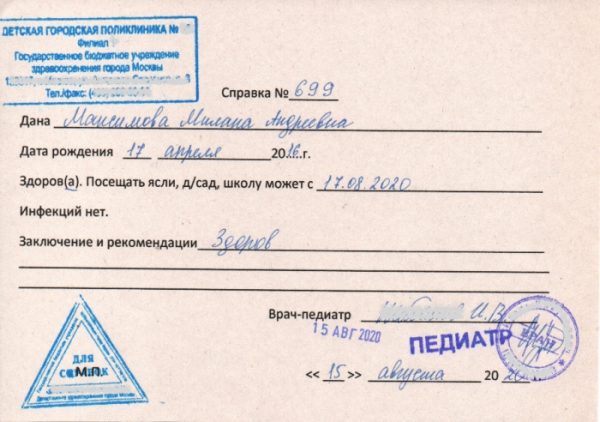 ДЕТСКАЯ ГОРОДСКАЯ ПОЛИКЛИНИКА №
Филиал
Государственное бюджетное учреждение
здравоохранения города Москвы
Тел./факс:
Справка № 699
Дана Максимова Милана Андреевна
Дата рождения 17 апреля 2016.г.
Здоров(а). Посещать ясли, д/сад, школу может с 17.08.2020
Инфекций нет.
Заключение и рекомендации Здоров
Врач-педиатр И.В.
15 АВГ 2020
ПЕДИАТР
ВРАЧ
<< 15 >> августа 2020
ДЛЯ
М.П.
Департамент здравоохранения города Москвы